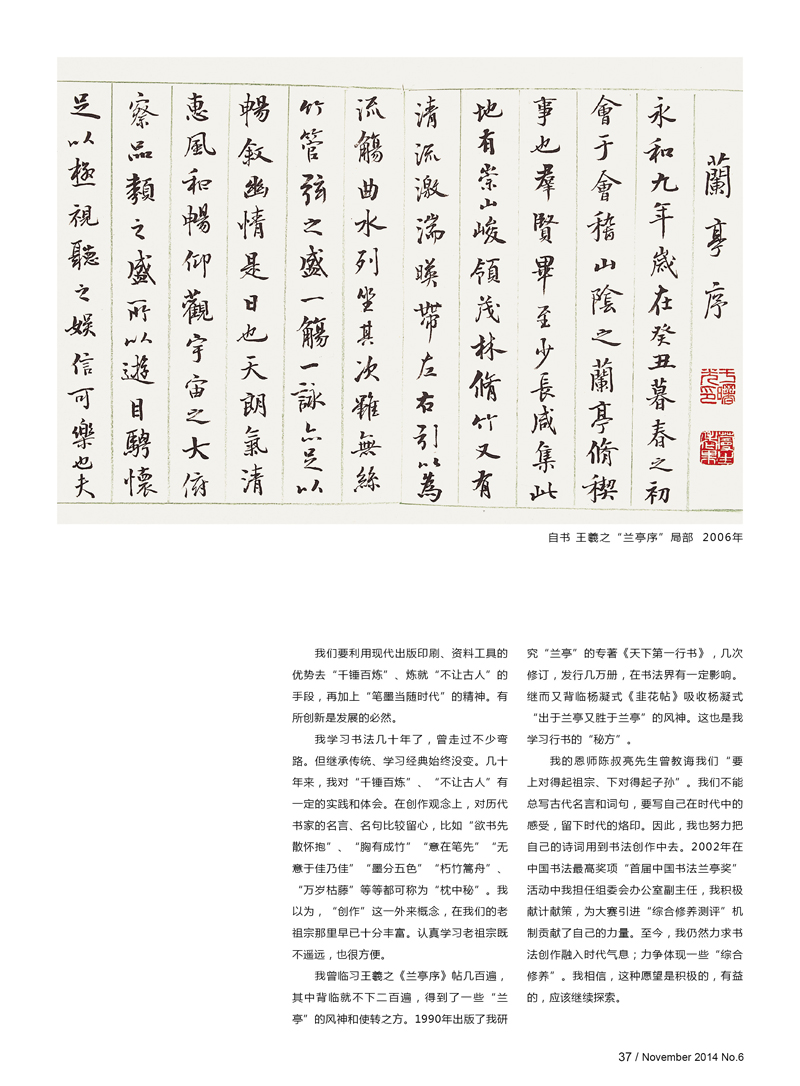 蘭亭序
永和九年歲在癸丑暮春之初
會于會稽山陰之蘭亭脩稧
事也羣賢畢至少長咸集此
地有崇山峻領茂林脩竹又有
清流激湍暎帶左右引以為
流觴曲水列坐其次雖無絲
竹管弦之盛一觴一詠亦足以
暢叙幽情是日也天朗氣清
惠風和暢仰觀宇宙之大俯
察品類之盛所以遊目騁懷
足以極視聽之娛信可樂也夫
自书 王羲之“兰亭序”局部 2006年
我们要利用现代出版印刷、资料工具的
优势去“千锤百炼”、炼就“不让古人”的
手段，再加上“笔墨当随时代”的精神。有
所创新是发展的必然。
我学习书法几十年了，曾走过不少弯
路。但继承传统、学习经典始终没变。几十
年来，我对“千锤百炼”、“不让古人”有
一定的实践和体会。在创作观念上，对历代
书家的名言、名句比较留心，比如“欲书先
散怀抱”、“胸有成竹”“意在笔先”“无
意于佳乃佳”“墨分五色”“朽竹篙舟”、
“万岁枯藤”等等都可称为“枕中秘”。我
以为，“创作”这一外来概念，在我们的老
祖宗那里早已十分丰富。认真学习老祖宗既
不遥远，也很方便。
我曾临习王羲之《兰亭序》帖几百遍，
其中背临就不下二百遍，得到了一些“兰
亭”的风神和使转之方。1990年出版了我研
究“兰亭”的专著《天下第一行书》，几次
修订，发行几万册，在书法界有一定影响。
继而又背临杨凝式《韭花帖》吸收杨凝式
“出于兰亭又胜于兰亭”的风神。这也是我
学习行书的“秘方”。
我的恩师陈叔亮先生曾教诲我们“要
上对得起祖宗、下对得起子孙”。我们不能
总写古代名言和词句，要写自己在时代中的
感受，留下时代的烙印。因此，我也努力把
自己的诗词用到书法创作中去。2002年在
中国书法最高奖项“首届中国书法兰亭奖”
活动中我担任组委会办公室副主任，我积极
献计献策，为大赛引进“综合修养测评”机
制贡献了自己的力量。至今，我仍然力求书
法创作融入时代气息；力争体现一些“综合
修养”。我相信，这种愿望是积极的，有益
的，应该继续探索。
37 / November 2014 No.6